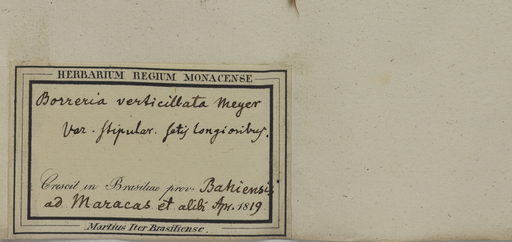 HERBARIUM REGIUM MONACENSE
Borreria verticillata Meyer
Var. stipular. setis longioribus.
Crescit in Brasiliae prov. Bahiensi,
ad Maracas et alibi Apr. 1819
Martius Iter Brasiliense.